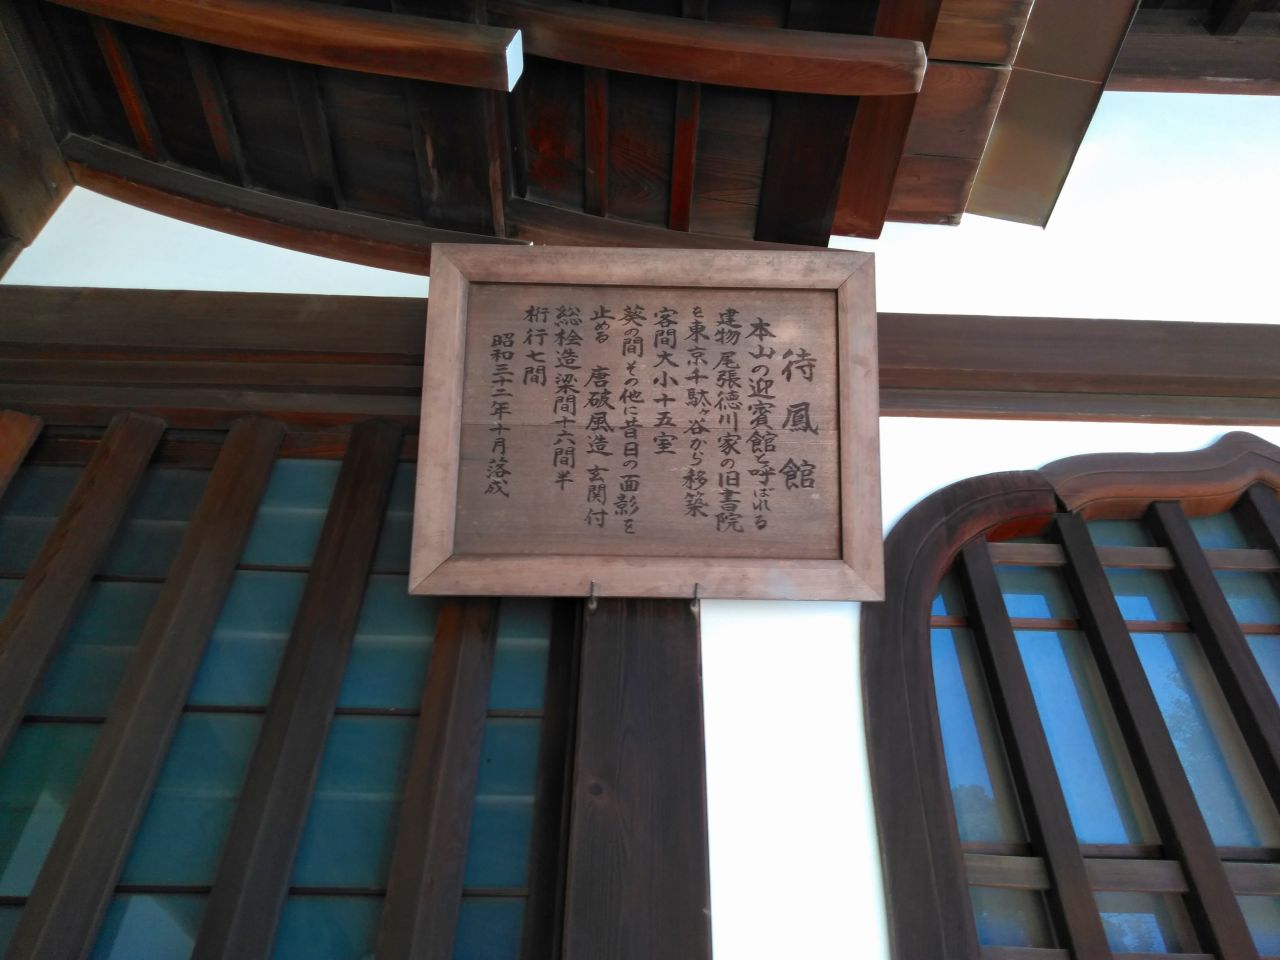 待鳳館
本山の迎賓館と呼ばれる
建物尾張徳川家の旧書院
を東京千駄ヶ谷から移築
客間大小十五室
葵の間その他に昔日の面影を
止める 唐破風造 玄関付
総桧造梁間十六間半
桁行七間
昭和三十二年十月落成